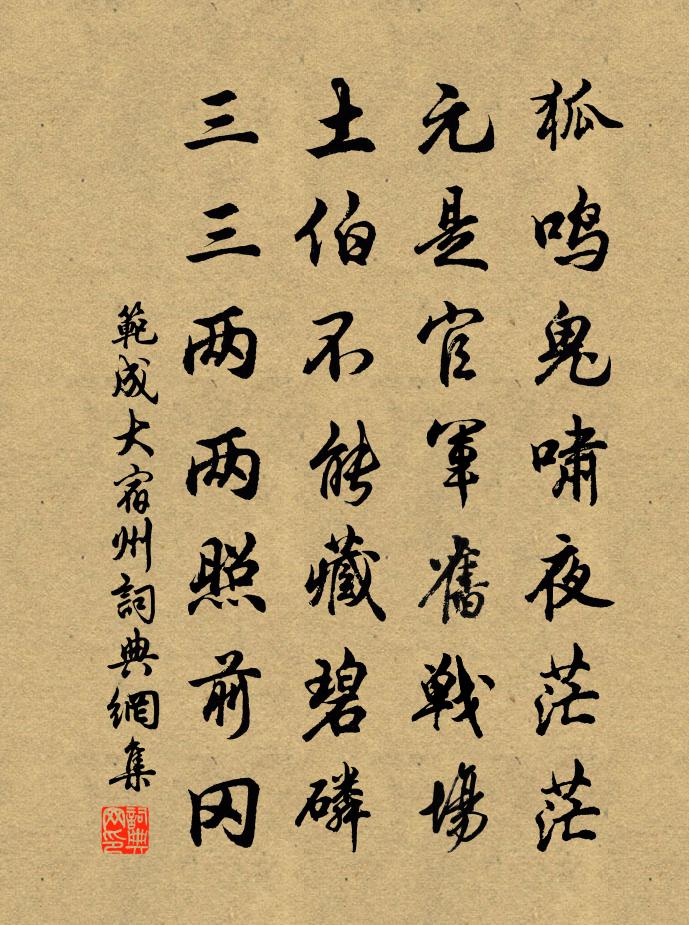 狐鸣鬼啸夜茫茫
元是官军舊戦場
土伯不能藏碧磷
三三两两照前冈
範成大宿州詞典網集
詞典网印